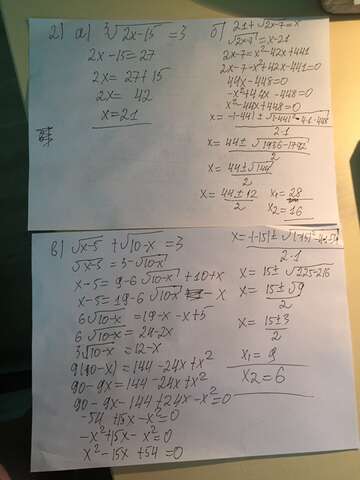 2) а) ∛2x-15 = 3
2x-15=27
2x=27+15
2x= 42
x=21
б) 21+√2x-7=x
√2x-7=x-21
2x-7=x²-42x+441
2x-7-x²+42x-441=0
44x-448=0
-x²+44x-448=0
x²-44x+448=0
x=-(-44)±√(-44)²-4·1·448
2·1
x=44±√1936-1792
2
x=44±√144
2
x=44±12 x₁=28
2 x₂=16
в) √x-5 +√10-x=3
√x-5=3-√10-x
x-5=9-6√10-x+10-x
x-5=19-6√10-x -x
6√10-x=19-x-x+5
6√10-x=24-2x
3√10-x=12-x
9(10-x)=144-24x+x²
90-9x=144-24x+x²
90-9x-144+24x-x²=0
-54+15x-x²=0
-x²+15x-x²=0
x²-15x+54=0
2·1
x=15±√225-216
2
x=15±√9
2
x=15±3
2
x₁=9
x2=6